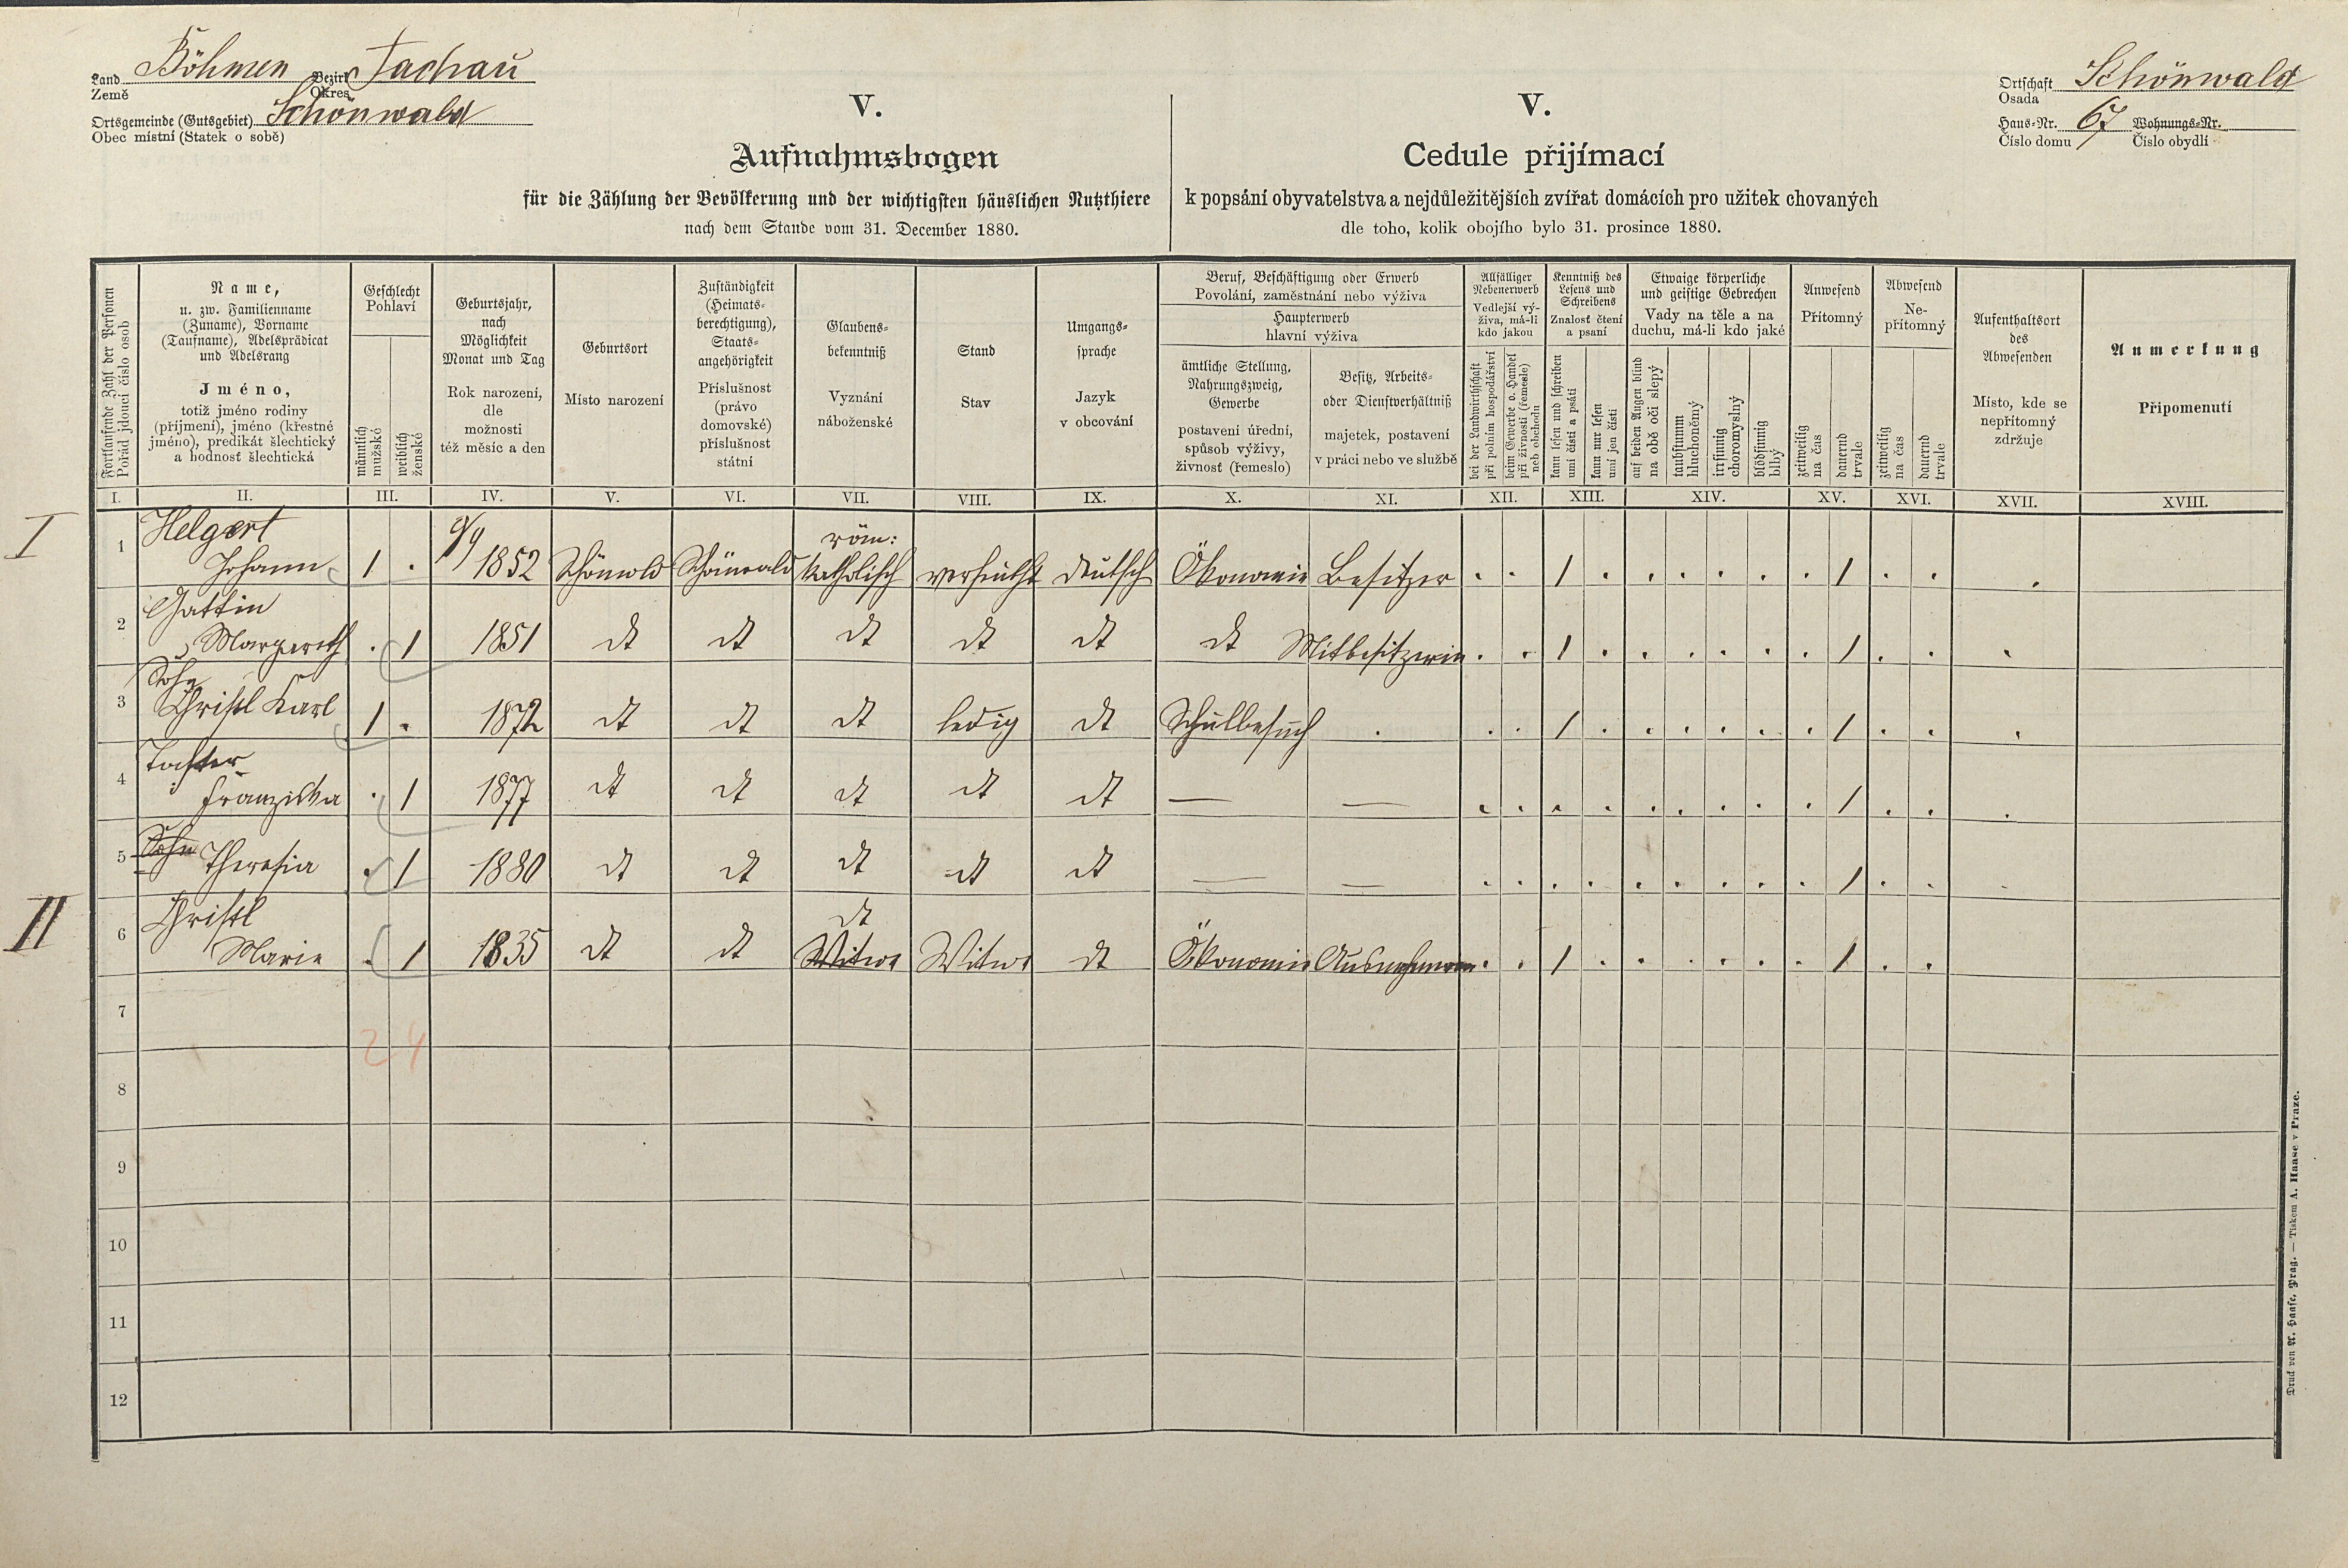 Land Böhmen Bezirk Tachau
Země Okres
Ortsgemeinde (Gutsgebiet) Schönwald
Obec místní (Statek o sobě)
Ortschaft Schönwald
Osada
Haus-Nr. 67 Wohnungs-Nr.
Číslo domu Číslo obydlí
V.
Aufnahmsbogen
für die Zählung der Bevölkerung und der wichtigsten häuslichen Nutzthiere
nach dem Stande vom 31. December 1880.
V.
Cedule přijímací
k popsání obyvatelstva a nejdůležitějších zvířat domácích pro užitek chovaných
dle toho, kolik obojího bylo 31. prosince 1880.
Fortlaufende Zahl der Personen
Pořád jdoucí číslo osob
Name,
u. zw. Familienname
(Zuname), Vorname
(Taufname), Adelsprädicat
und Adelsrang
Jméno,
totiž jméno rodiny
(příjmení), jméno (křestné
jméno), predikát šlechtický
a hodnosť šlechtická
Geschlecht
Pohlaví
männlich
mužské
weiblich
ženské
Geburtsjahr,
nach
Möglichkeit
Monat und Tag
Rok narození,
dle
možnosti
též měsíc a den
Geburtsort
Místo narození
Zuständigkeit
(Heimats-
berechtigung),
Staats-
angehörigkeit
Příslušnost
(právo
domovské)
příslušnost
státní
Glaubens-
bekenntniß
Vyznání
náboženské
Stand
Stav
Umgangs-
sprache
Jazyk
v obcování
Beruf, Beschäftigung oder Erwerb
Povolání, zaměstnání nebo výživa
Haupterwerb
hlavní výživa
ämtliche Stellung,
Nahrungszweig,
Gewerbe
postavení úřední,
spůsob výživy,
živnosť (řemeslo)
Besitz, Arbeits-
oder Dienstverhältniß
majetek, postavení
v práci nebo ve službě
Allfälliger
Nebenerwerb
Vedlejší vý-
živa, má-li
kdo jakou
bei der Landwirthschaft
při polním hospodářství
beim Gewerbe o. Handel
při živnosti (řemesle)
neb obchodu
Kenntniß des
Lesens und
Schreibens
Znalosť čtení
a psaní
kann lesen und schreiben
umí čísti a psáti
kann nur lesen
umí jen čísti
Etwaige körperliche
und geistige Gebrechen
Vady na těle a na
duchu, má-li kdo jaké
auf beiden Augen blind
na obě oči slepý
taubstumm
hluchoněmý
irrsinnig
choromyslný
blödsinnig
blbý
Anwesend
Přítomný
zeitweilig
na čas
dauernd
trvale
Abwesend
Ne-
přítomný
zeitweilig
na čas
dauernd
trvale
Aufenthaltsort
des
Abwesenden
Místo, kde se
nepřítomný
zdržuje
Anmerkung
Připomenutí
I. II. III. IV. V. VI. VII. VIII. IX. X. XI. XII. XIII. XIV. XV. XVI. XVII. XVIII.
I
1 Helgert 9/9 röm:
Johann 1 . 1852 Schönwald Schönwald katholisch verheiratht deutsch Ökonomie Besitzer . . 1 . . . . . . 1 . . .
2 Gattin
Margareth . 1 1851 dt dt dt dt dt dt Mitbesitzerin . . 1 . . . . . . 1 . . .
3 Sohn
Christl Karl 1 . 1872 dt dt dt ledig dt Schulbesuch . . . 1 . . . . . . 1 . . .
4 Tochter
Franziska . 1 1877 dt dt dt dt dt — — . . . . . . . . . 1 . . .
5 Sohn Theresia . 1 1880 dt dt dt dt dt — — . . . . . . . . . 1 . . .
II
6 Christl dt
Marie . 1 1835 dt dt Witwe Witwe dt Ökonomie . . 1 . . . . . . 1 . .
7
2 4
8
9
10
11
12
Druck von A. Haase, Prag. — Tiskem A. Haase v Praze.